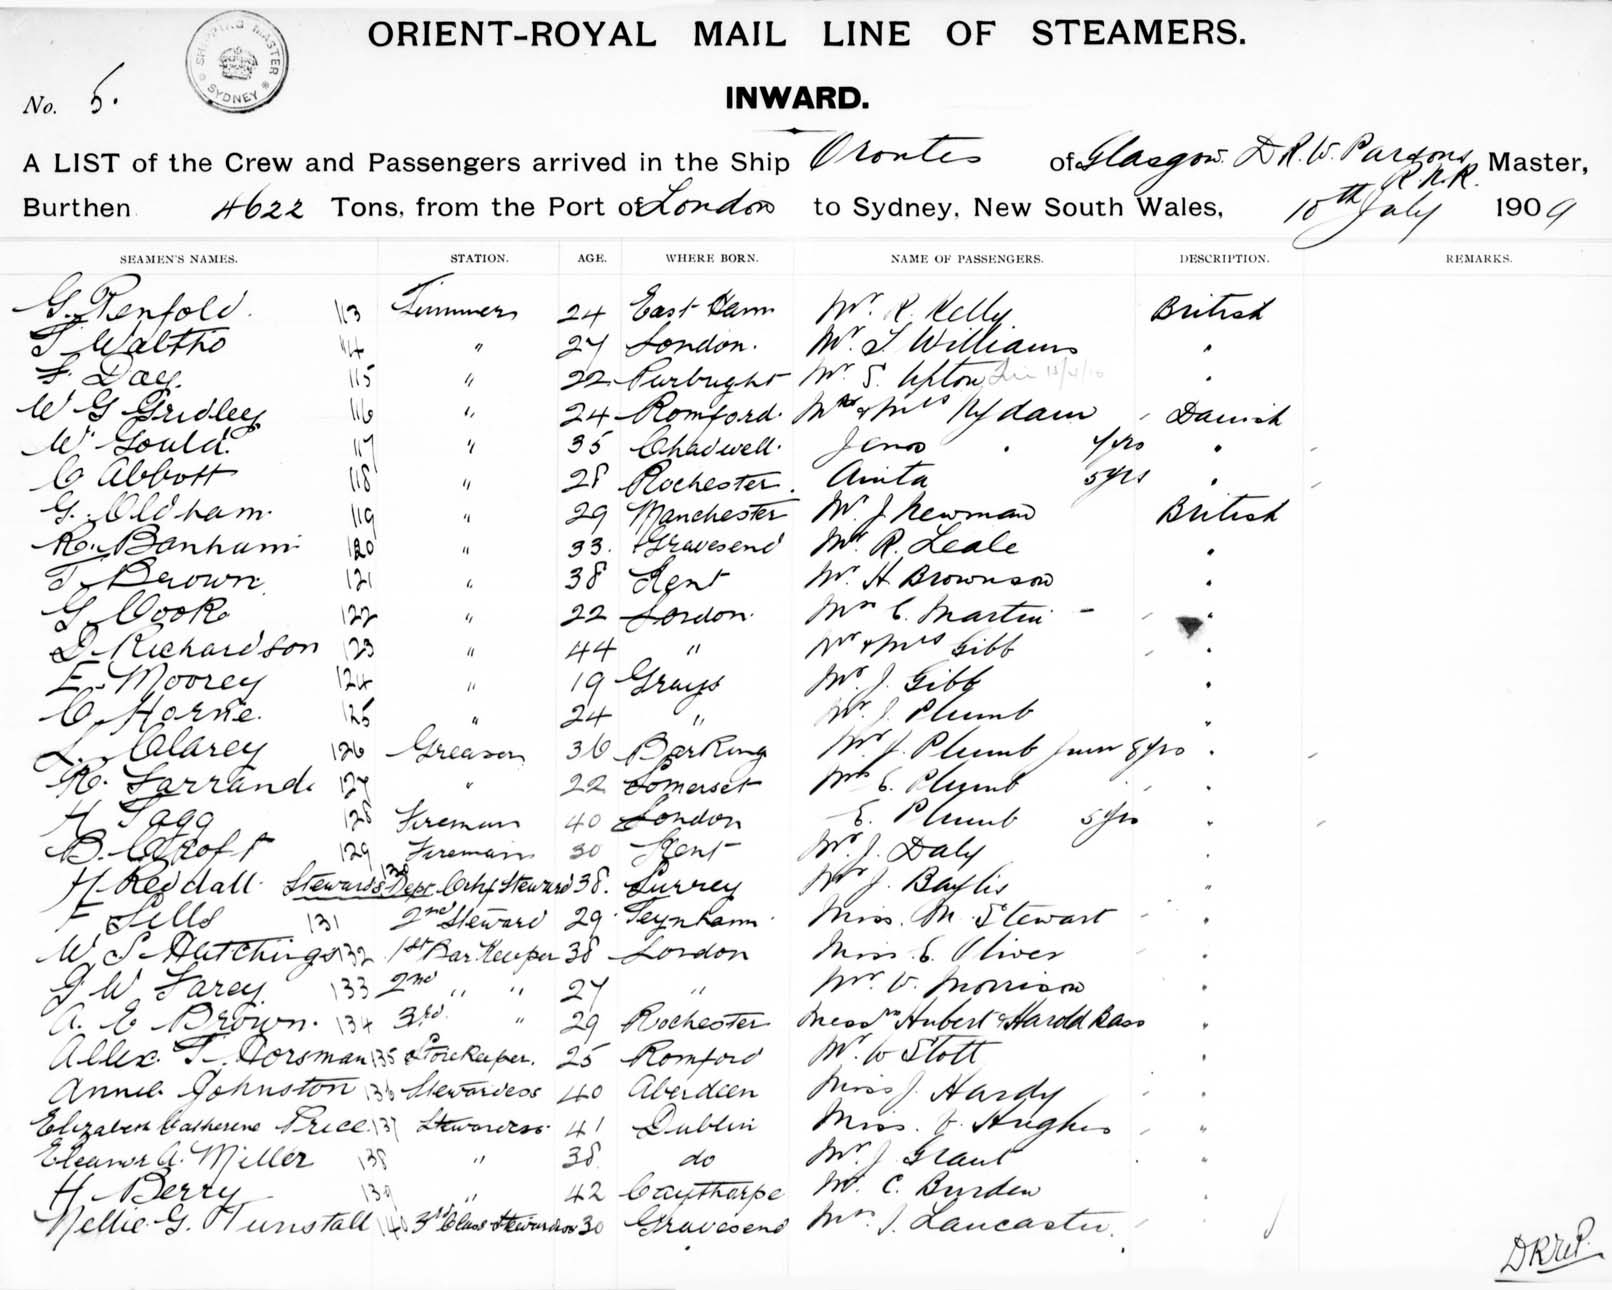 ORIENT-ROYAL MAIL LINE OF STEAMERS.
SHIPPING MASTER SYDNEY
No. 5.
INWARD.
A LIST of the Crew and Passengers arrived in the Ship Orontes of Glasgow. D R. W. Parsons R.N.R. Master,
Burthen 4622 Tons, from the Port of London to Sydney, New South Wales, 10th July 1909
SEAMEN'S NAMES. STATION. AGE. WHERE BORN. NAME OF PASSENGERS. DESCRIPTION. REMARKS.
G. Penfold. 113 Trimmers 24 East Ham Mr. R. Kelly British
T Waltho 114 " 27 London. Mr. T Williams "
F. Day. 115 " 22 Purbright Mr. S. Upton "
W G Gridley 116 " 24 Romford. Mr & Mrs Rydam Danish
W Gould. 117 " 35 Chadwell. Jenos " 7 yrs "
C Abbott 118 " 28 Rochester. Anita 5 yrs "
G. Oldham. 119 " 29 Manchester Mr. J. Newman British
R. Banham 120 " 33. Gravesend Mr. R. Leale "
T. Brown 121 " 38 Kent Mr. H. Brownson "
G. Cook 122 " 22 London. Mrs C. Martin - "
D. Richardson 123 " 44 " Mr & Mrs Gibb "
E. Moorey 124 " 19 Grays Mr. J. Gibb "
C. Horne. 125 " 24 " Mr. J. Plumb "
L. Clarey 126 Greaser 36 Barking Mr. J. Plumb Junr 8 yrs "
R. Farrand. 127 " 22 Somerset Mrs E. Plumb "
H Tagg 128 Fireman 40 London E. Plumb 5 yrs "
B. Croft 129 Fireman 30 Kent Mr. J. Daly "
H Reddall. Stewards Dept 130 Chf Steward 38. Surrey Mr J. Baylis "
F Sells 131 2nd Steward 29 Teynham Miss. M. Stewart "
W S Hutchings 132 1st Bar Keeper 38 London Miss E. Oliver "
G W Farey. 133 2nd " " 27 " Mr. V. Morrison "
A. E Brown. 134 3rd. " 29 Rochester Messrs Hubert & Harold Bass "
Allex. T. Horsman 135 Storekeeper. 25 Romford Mr. W Stott "
Annie Johnston 136 Stewardess 40 Aberdeen Miss J. Hardy "
Elizabeth Catherine Price 137 Stewardess. 41 Dublin Miss. V. Hughes "
Eleanor A. Miller 138 " 38 do Mr. J. Grant "
H. Berry 139 " 42 Caythorpe Mr. C. Burden "
Nellie G. Tunstall 140 3rd Class Stewardess 30 Gravesend Mrs. J. Lancaster. "
DRWP.